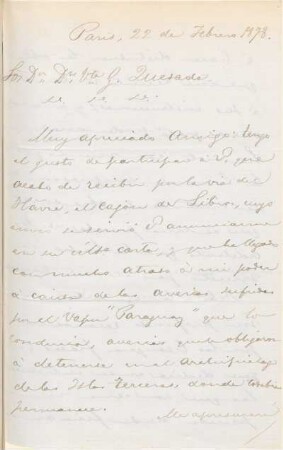 Paris, 22 de Febrero 1878.
Sor Dn Dr. Vte G. Quesada.
Muy apreciado Amigo: tengo
el gusto de participar á V. que
acabo de recibir por la via del
Havre, el cajon de Libros, cuyo
envio se sirvió V. anunciarme
en su carta, y que ha llegado
con mucho atraso á mi poder
á causa de las averias sufridas
por el Vapor "Paraguay" que lo
conducia, averias que le obligaron
á detenerse en el Archipielago
de las Islas Terceras donde
permanece.
Me apresuro